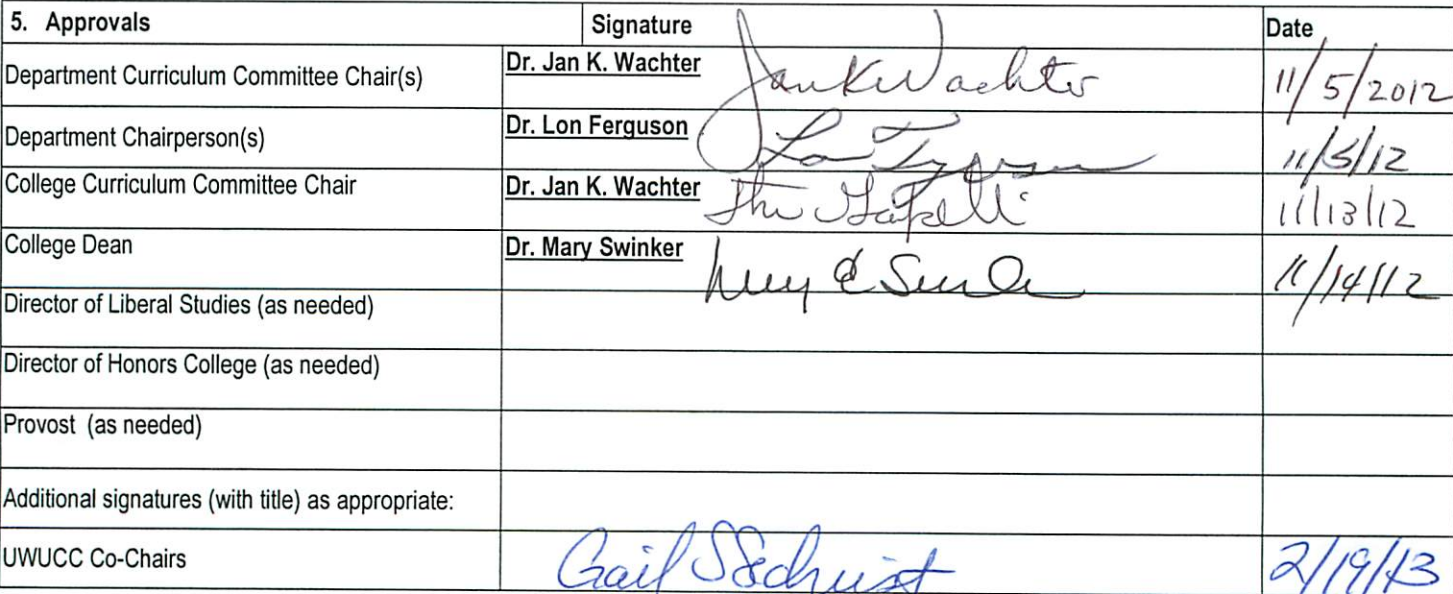 5. Approvals Signature Date
Department Curriculum Committee Chair(s) Dr. Jan K. Wachter Jan K Wachter 11/5/2012
Department Chairperson(s) Dr. Lon Ferguson Lon Ferguson 11/5/12
College Curriculum Committee Chair Dr. Jan K. Wachter 11/13/12
College Dean Dr. Mary Swinker 11/14/12
Director of Liberal Studies (as needed)
Director of Honors College (as needed)
Provost (as needed)
Additional signatures (with title) as appropriate:
UWUCC Co-Chairs Gail S Sechrist 2/19/13